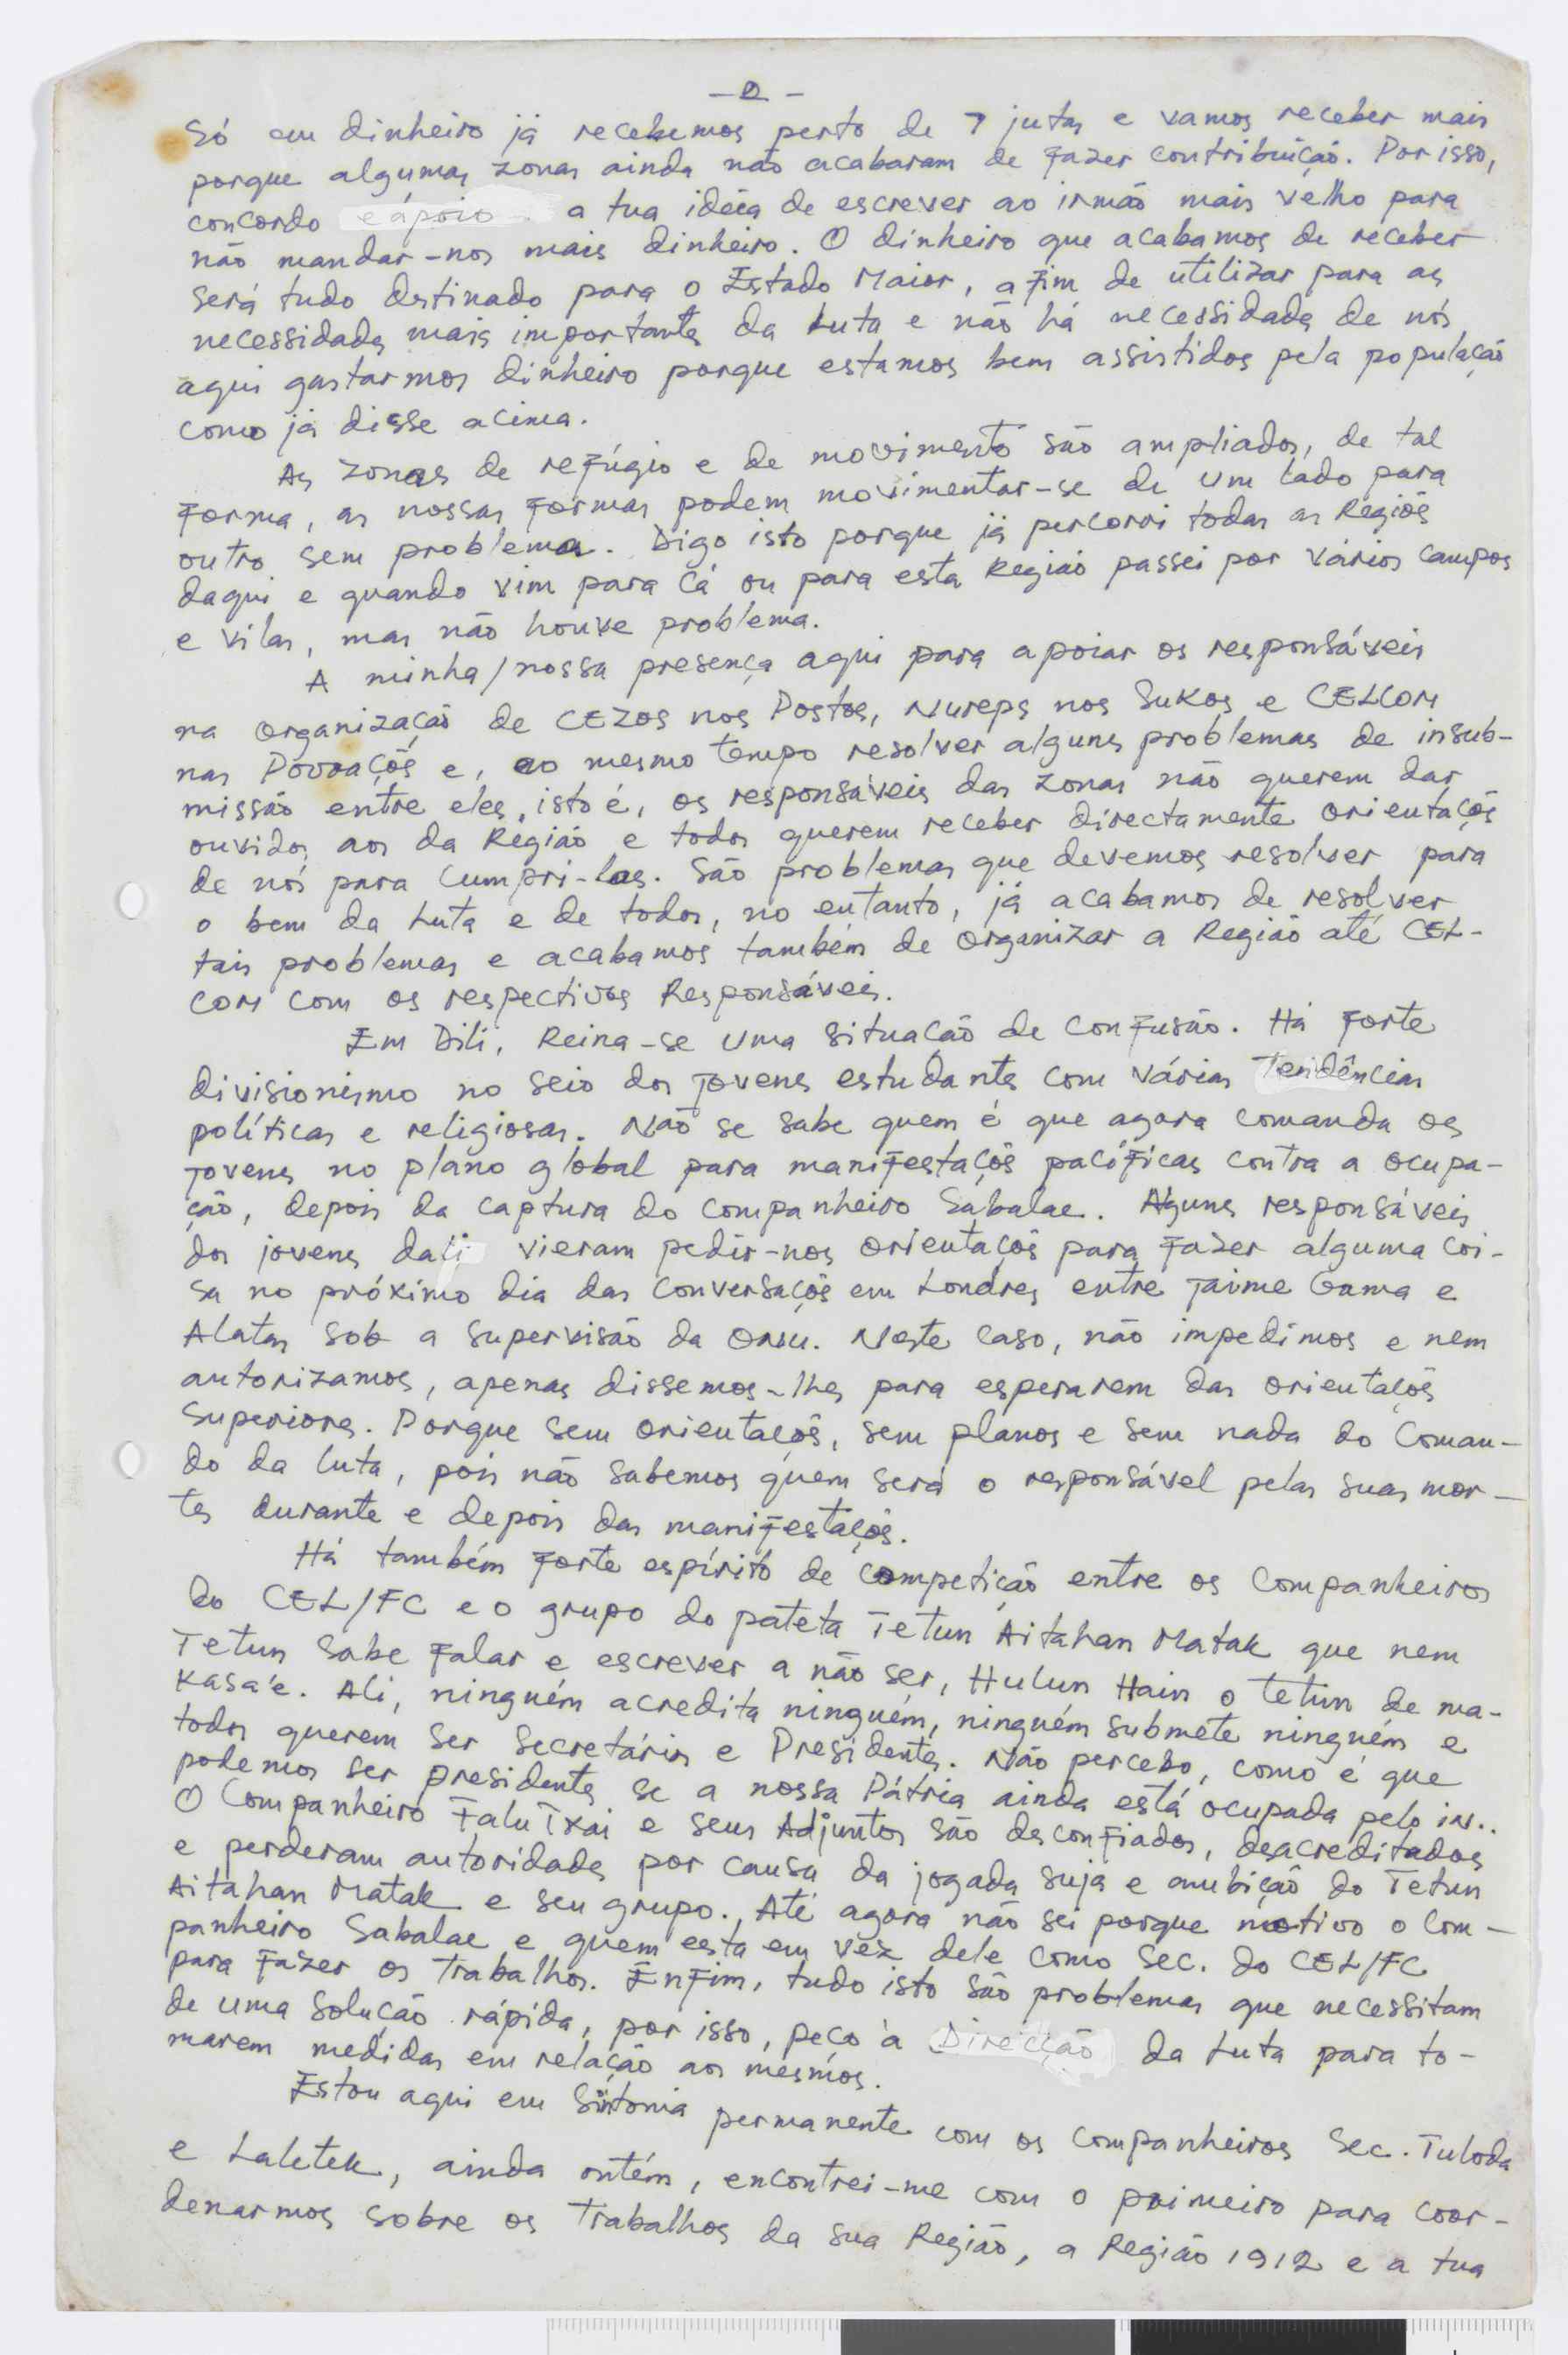 - 2 -
Só em dinheiro já recebemos perto de 7 jutas e vamos receber mais
porque algumas zonas ainda não acabaram de fazer contribuição. Por isso,
concordo e ápoio a tua idéia de escrever ao irmão mais velho para
não mandar-nos mais dinheiro. O dinheiro que acabamos de receber
será tudo destinado para o Estado Maior, a fim de utilizar para as
necessidades mais importantes da Luta e não há necessidade de nós
aqui gastarmos dinheiro porque estamos bem assistidos pela população
como já disse acima.
As zonas de refúgio e de movimento são ampliados, de tal
forma, as nossas formas podem movimentar-se de um lado para
outro sem problema. Digo isto porque já percorri todas as Regiões
daqui e quando vim para cá ou para esta Região passei por vários campos
e vilas, mas não houve problema.
A minha/nossa presença aqui para apoiar os responsáveis
na organização de CEZOS nos Postos, Nureps nos Sukos e CELCOM
nas Povoações e, ao mesmo tempo resolver alguns problemas de insub-
missão entre eles, isto é, os responsáveis das zonas não querem dar
ouvidos aos da Região e todos querem receber directamente orientações
de nós para cumpri-las. São problemas que devemos resolver para
o bem da Luta e de todos, no entanto, já acabamos de resolver
tais problemas e acabamos também de organizar a Região até CEL-
COM com os respectivos Responsáveis.
Em Dili, Reina-se uma situação de confusão. Há forte
divisionismo no seio dos jovens estudantes com várias Tendências
políticas e religiosas. Não se sabe quem é que agora comanda os
jovens no plano global para manifestações pacíficas contra a ocupa-
ção, depois da captura do companheiro Sabalae. Alguns responsáveis
dos jovens dali vieram pedir-nos orientações para fazer alguma coi-
sa no próximo dia das conversações em Londres entre Jaime Gama e
Alatas sob a supervisão da ONU. Neste caso, não impedimos e nem
autorizamos, apenas dissemos-lhes para esperarem das orientações
Superiores. Porque sem orientações, sem planos e sem nada do Coman-
do da luta, pois não sabemos quem será o responsável pelas suas mor-
tes durante e depois das manifestações.
Há também forte espírito de competição entre os companheiros
do CEL/FC e o grupo do pateta Tetun Aitahan Matak que nem
Tetun sabe falar e escrever a não ser, Hulun Hain o tetun de ma-
kasa'e. Ali, ninguém acredita ninguém, ninguém submete ninguém e
todos querem ser Secretários e Presidentes. Não percebo, como é que
podemos ser presidentes se a nossa Pátria ainda está ocupada pelo in..
O Companheiro FaluTxai e seus Adjuntos são desconfiados, desacreditados
e perderam autoridades por causa da jogada suja e ambição do Tetun
Aitahan Matak e seu grupo. Até agora não sei porque motivo o Com-
panheiro Sabalae e quem esta em vez dele como Sec. do CEL/FC
para fazer os trabalhos. Enfim, tudo isto são problemas que necessitam
de uma solução rápida, por isso, peço à Direcção da Luta para to-
marem medidas em relação aos mesmos.
Estou aqui em Sintonia permanente com os companheiros Sec. Tuloda
e Laletek, ainda ontém, encontrei-me com o primeiro para coor-
denarmos sobre os trabalhos da sua Região, a Região 1912 e a tua